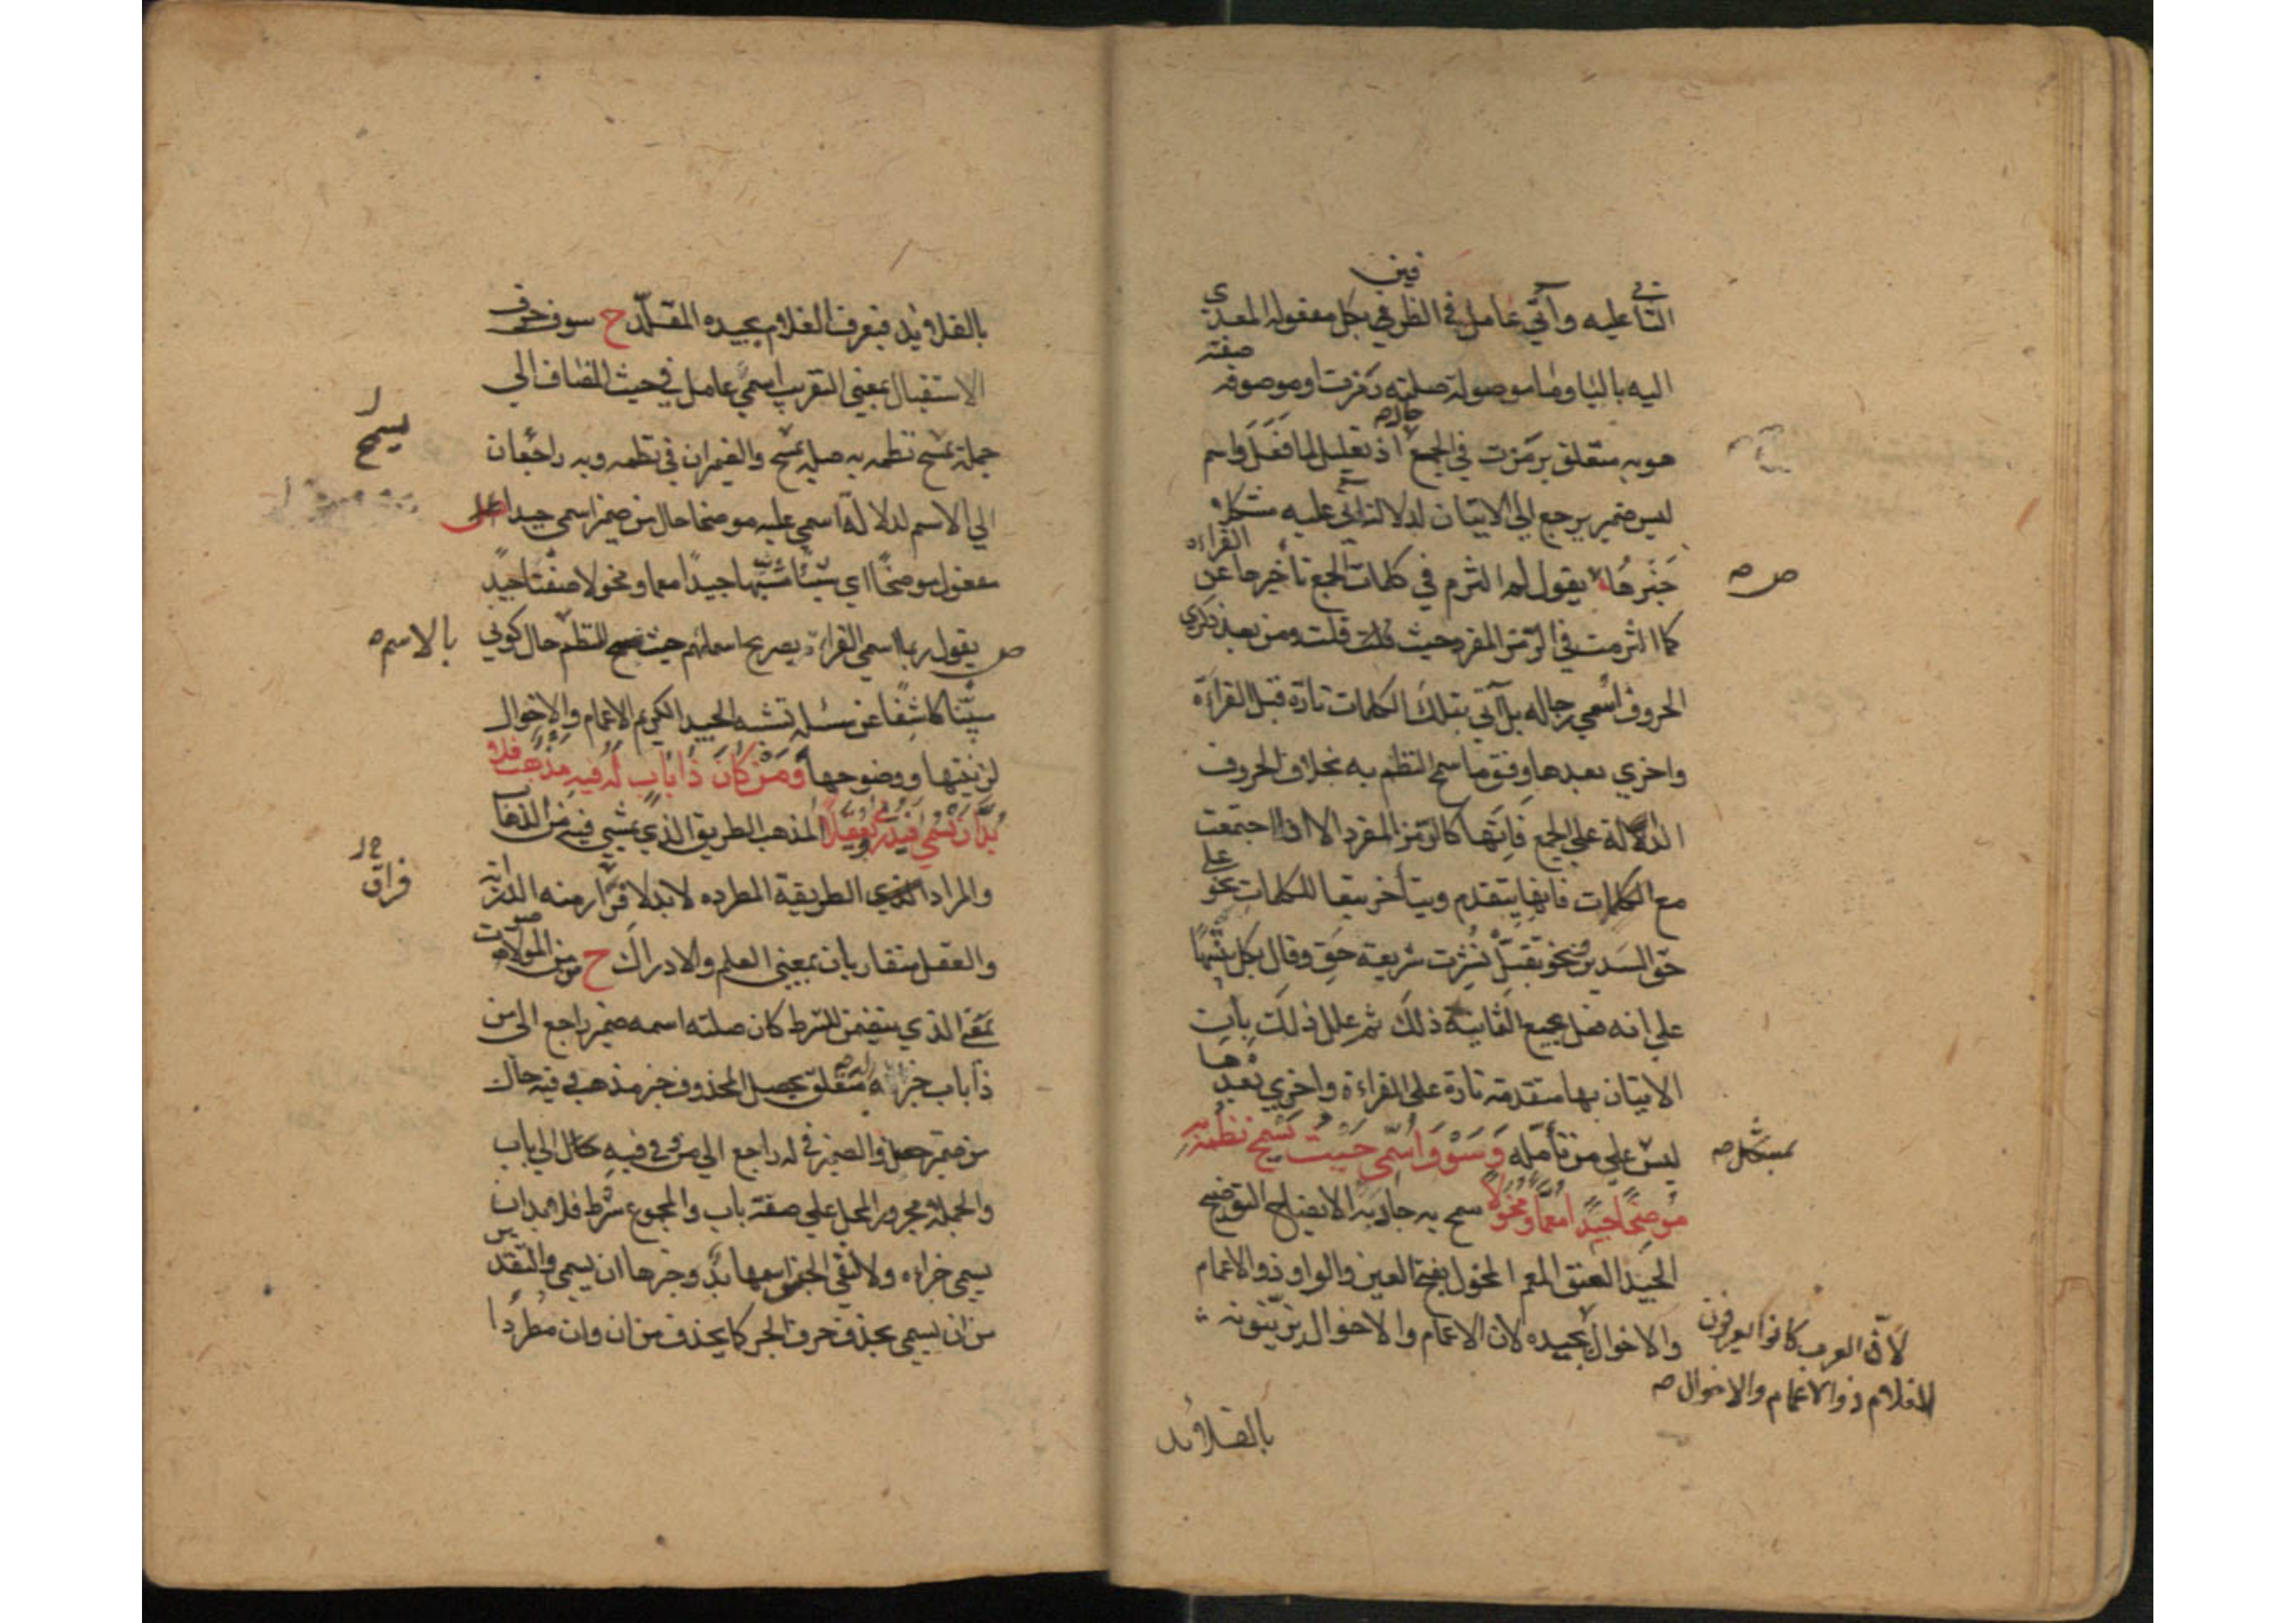 فين
الثا عليه وآتي عامل في الظرفي بكل مفعوله المعدى
اليه بالبا وما موصولة صلته رمزت او موصوفه صفته
هو به متعلق برمزت في الجمع اذ تعليل لما فعل واسم
ليس ضمير يرجع الي الاتيان لدلالة آتي عليه مشكلا
خبرها يقول لم التزم في كلمات الجمع تأخيرها عن القراءه
كما التزمت في الرمز المفرد حيث قلت ومن بعد ذكري
الحروف اسمي رجاله بل آتي بتلك الكلمات تارة قبل القراءة
واخري بعدها وفق ما سمح النظم به بخلاف الحروف
الدالة علي الجمع فانها كالرمز المفرد الا اذا اجتمعت
مع الكلمات فانها يتقدم ويتأخر تبعا للكلمات نحو علي
حق السد ونحو يقبل شريعة حق وقال بكل
علي انه فعل بجميع الثانية ذلك ثم علل ذلك بان
الاتيان بها متقدمة تارة على القراءة واخري بعدها
ليس علي من تأمله وسوف اسمي حيث يسمح نظمه به
موضحا جيدا معما ومخولا سمح به جاد به الايضاح التوضيح
الجيد العنق المعم المخول بفتح العين والواو ذو الاعمام
والاخوال بجيده لان الاعمام والاخوال يزينونه
بمشكل صح
لان العرب كانوا يعرفون
الغلام ذو الاعمام والاخوال صح
بالقلائد
بالقلائد فيعرف الغلام بجيده المقلد ح سوف حرف
الاستقبال بمعني التقريب اسمي عامل في حيث المضاف الي
جملة يسمح نظمه به صلة يسمح والضميران في نظمه وبه راجعان
الي الاسم لدلالة اسمي عليه موضحا حال من ضمير اسمي جيدا
مفعول موضحا اي شيئا شبيها جيدا معما ومخولا صفتا جيدا
يقول ربما اسمي القراء بصريح اسمائهم حيث يسمح النظم حال كوني
مبينا كاشفا عن مسئلة تشبه الجيد الكريم الاعمام والاخوال
لزينتها ووضوحها ومن كان ذا باب له فيه مذهب فلا
بد ان يسمي فيدري ويعقلا المذهب الطريق الذي يمشي فيه من الذهاب
والمراد الطريقة المطرده لا بد لا فرار منه الدراية
والعقل متقاربان بمعني العلم والادراك ح من من الموصولات
بمعني الذي يتضمن الشرط كان صلته اسمه ضمير راجع الى من
ذا باب خبر له متعلق بحصل المحذوف خبر مذهب وفيه حال
من ضمير حصل والضمير في له راجع الي من وفي فيه كان الي باب
والجملة مجرور المحل علي صفة باب والمجموع شرط فلا بد ان
يسمي جزاءه ولا لنفي الجنس اسمها بد وخبرها ان يسمي والتقدير
من ان يسمي بحذف حرف الجر كما يحذف من ان وان مطردا
يسمح
بالاسم
فراق